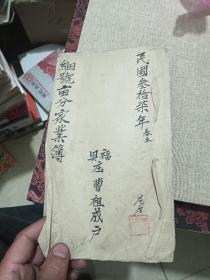 民國叁拾柒年春立
細號亩分家業簿
福
具存曹祖茂户